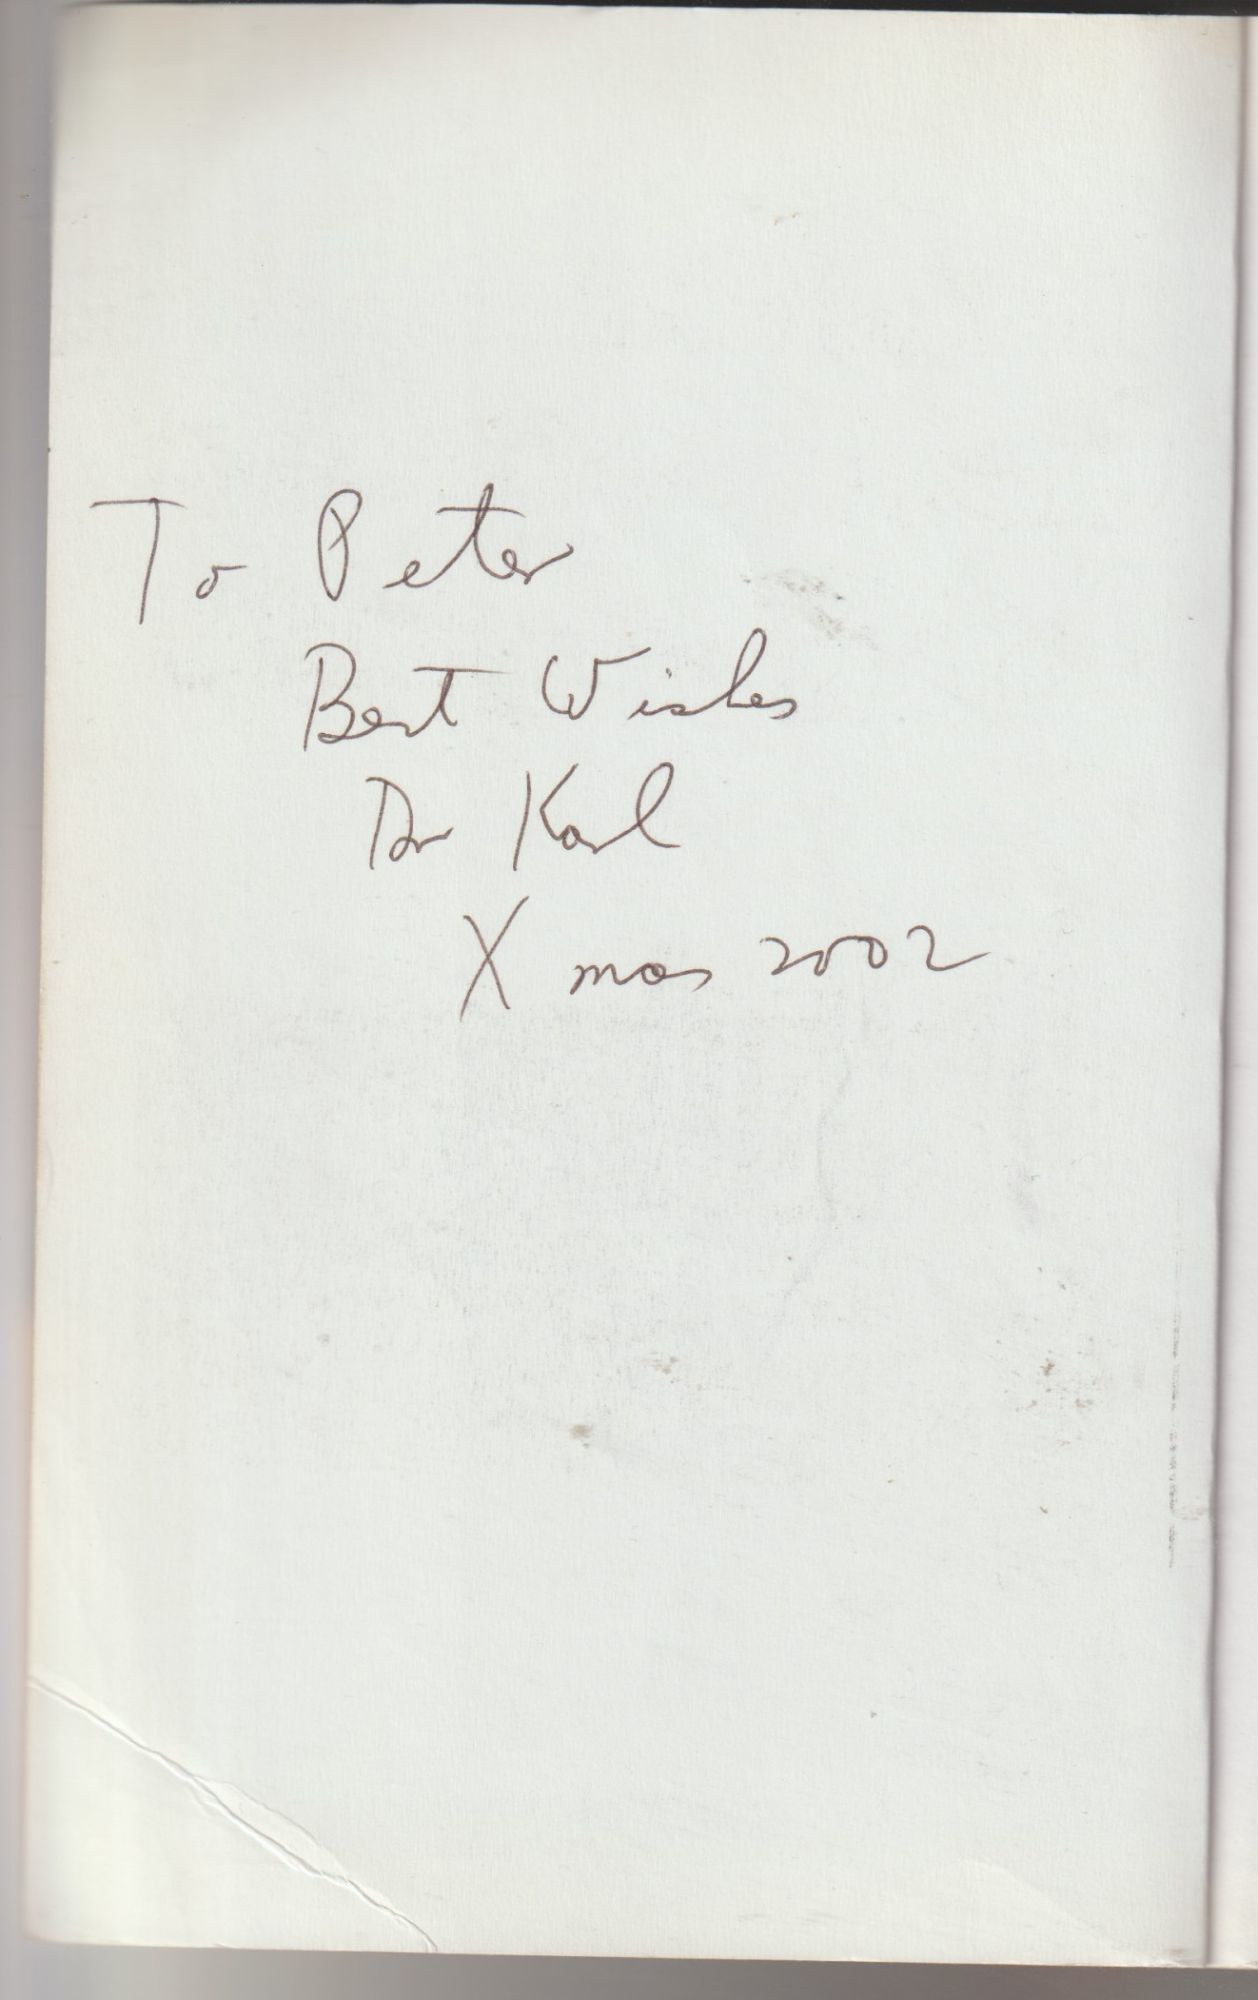 To Peter
Best Wishes
Dr Karl
Xmas 2002